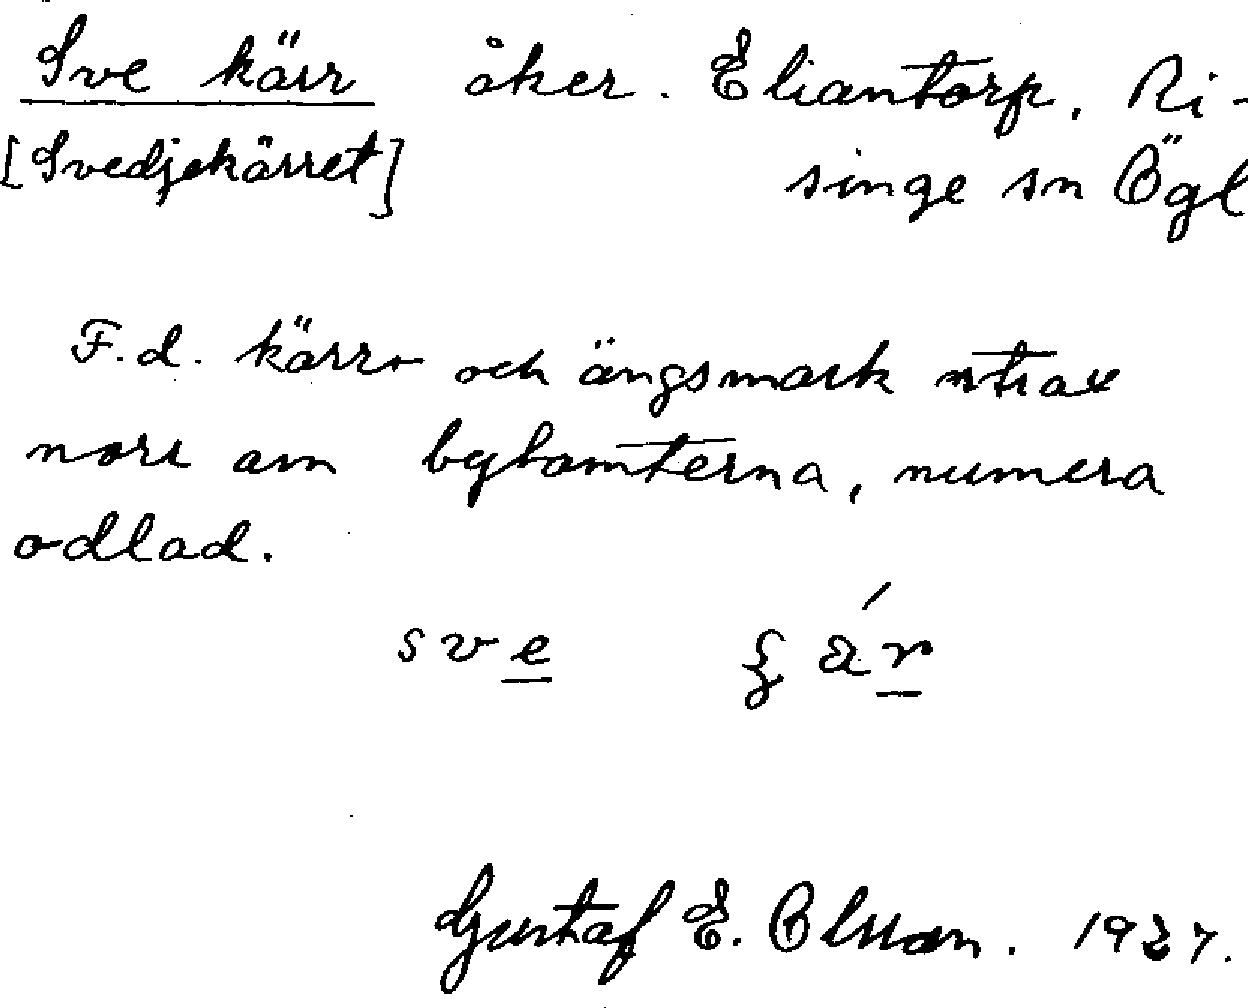 Sve kärr åker. Eliantorp, Ri-
[Svedjekärret] singe sn Ögl
F.d. kärr- och ängsmark strax
norr om bytomterna, numera
odlad.
sve
Gustaf E. Olsson. 1937.